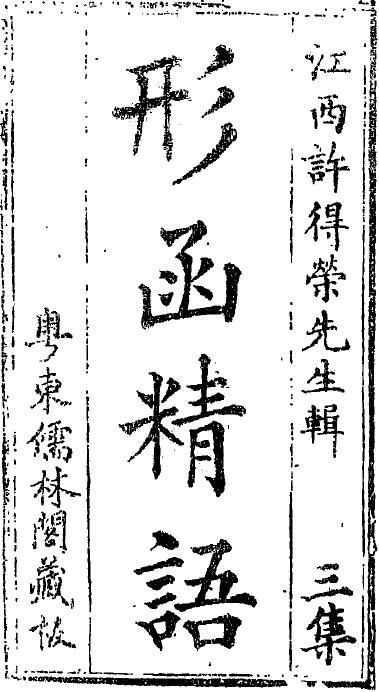 江西許得榮先生輯 三集
形函精語
粵東儒林閣藏板